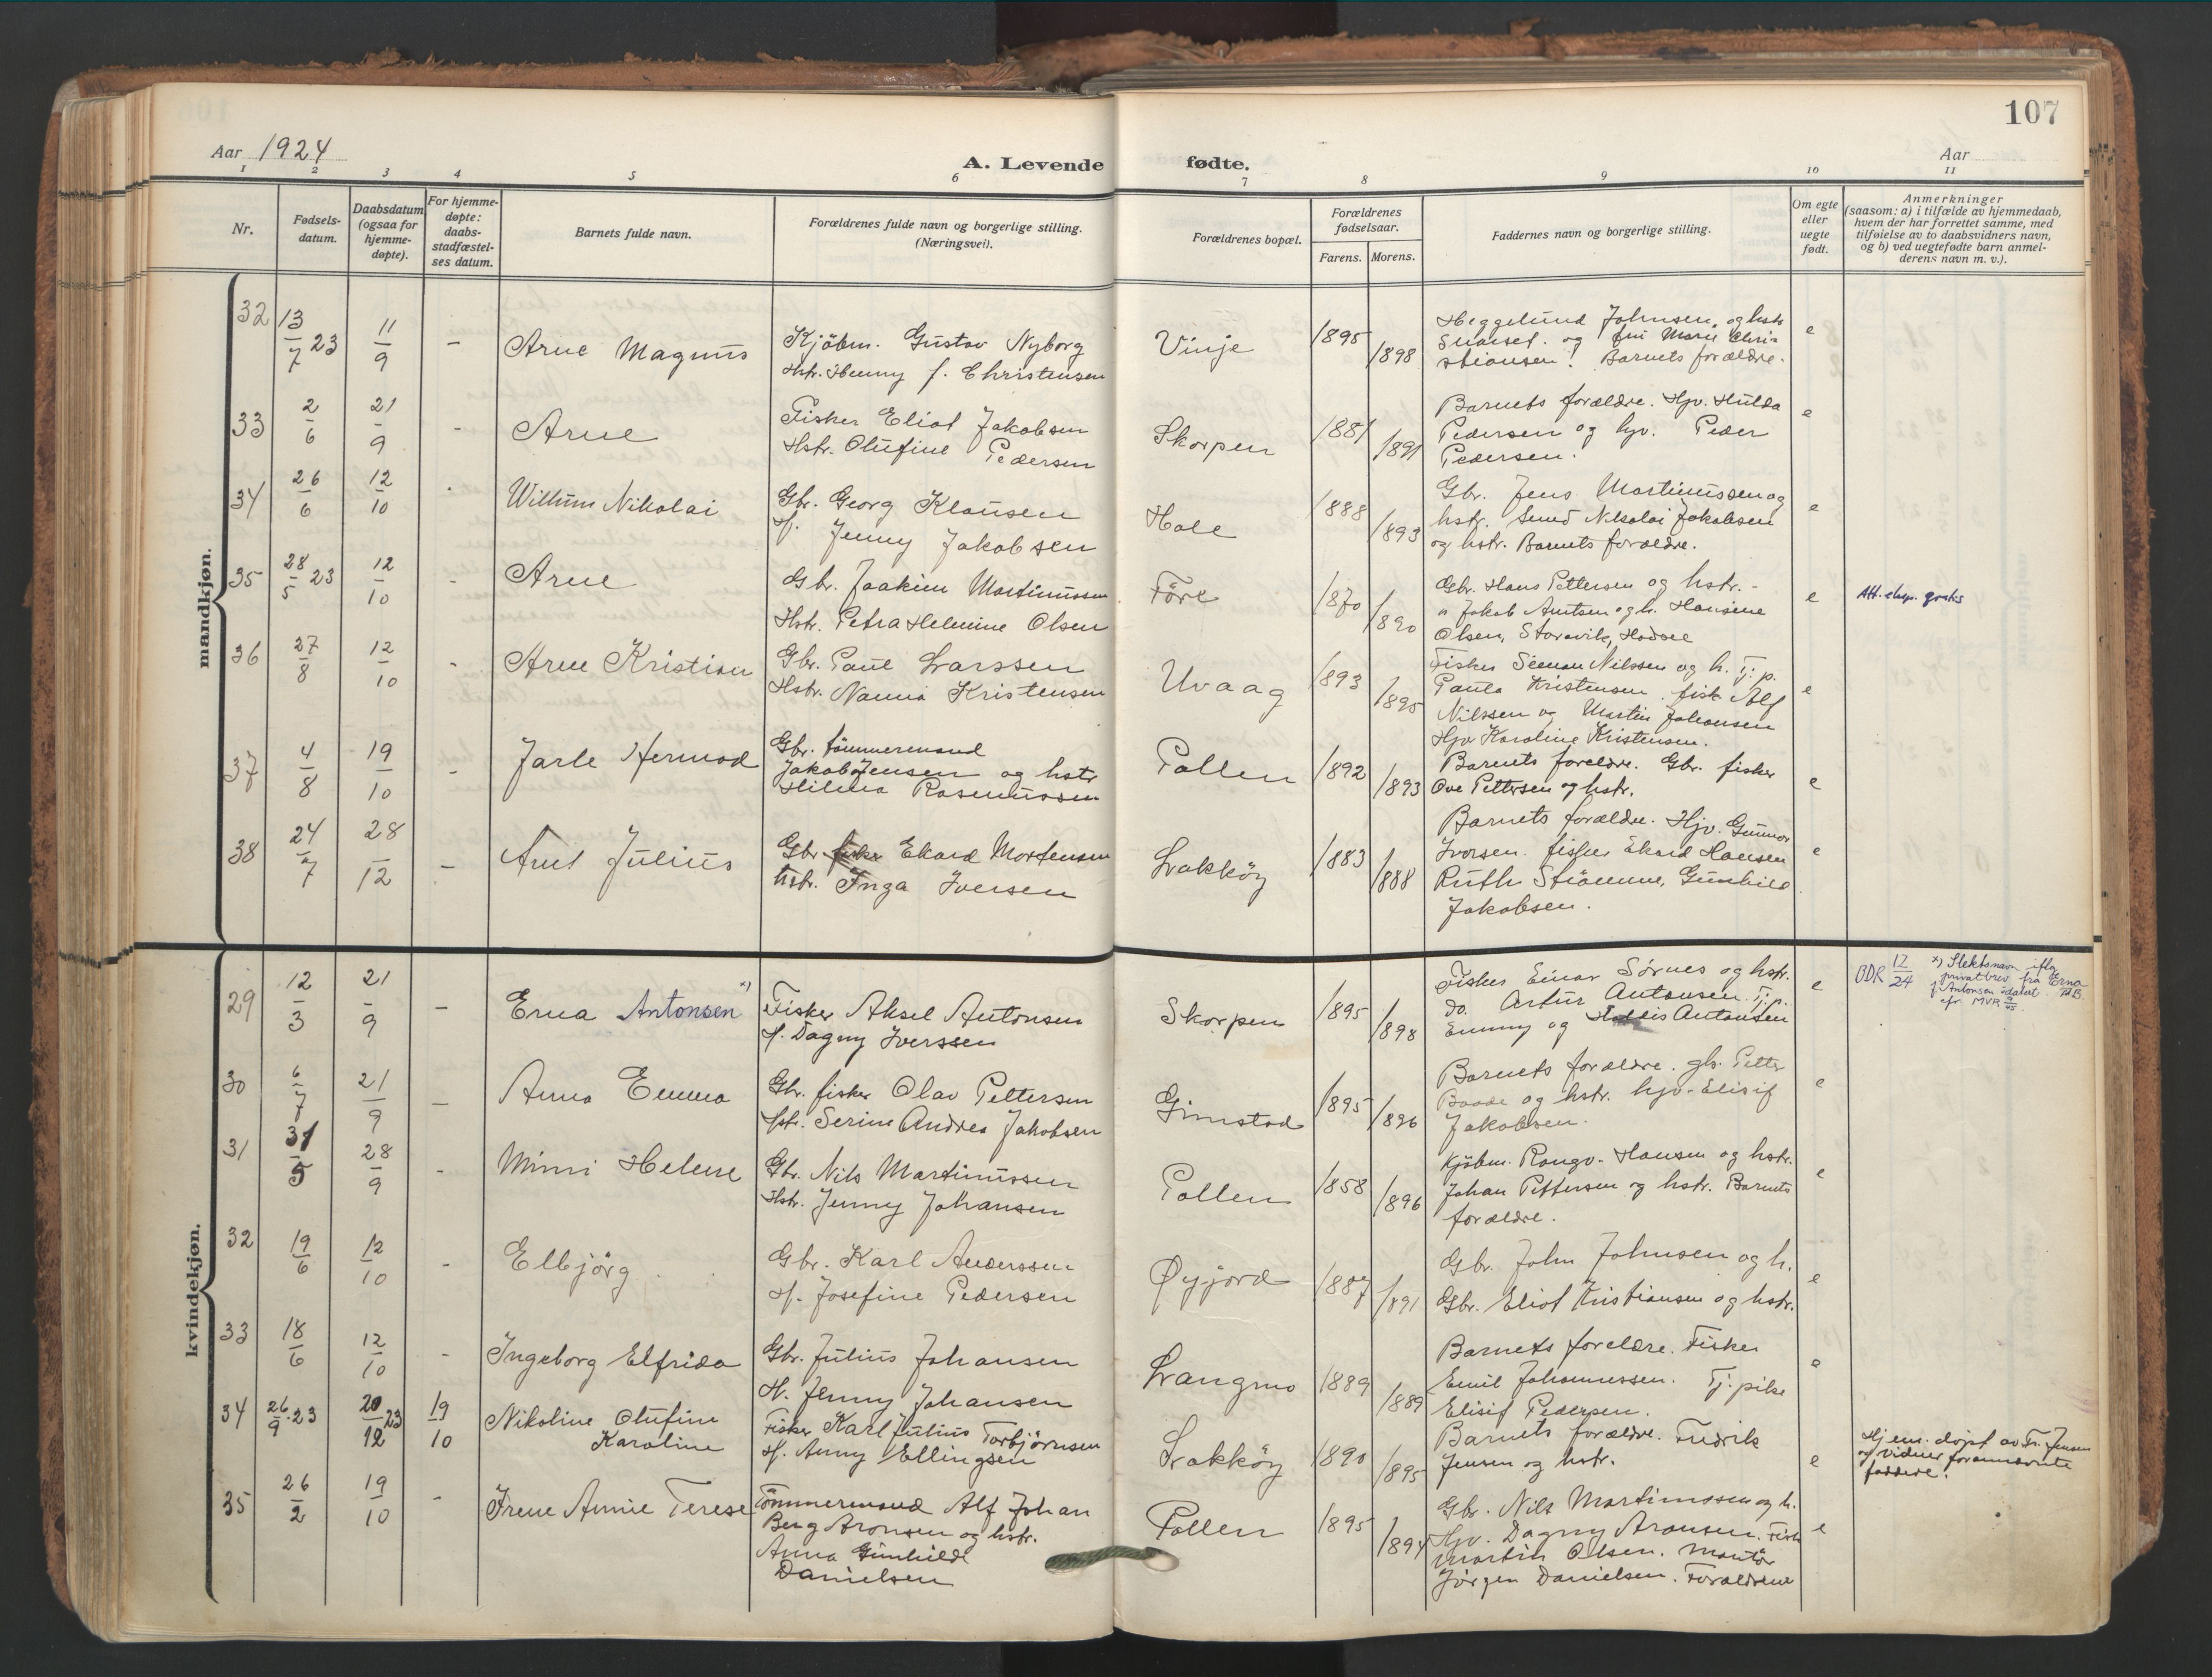 107
Aar 1924
A. Levende fødte.
Aar
1 2 3 4 5 6 7 8 9 10 11
Nr.
Fødsels-
datum.
Daabsdatum
(ogsaa for
hjemme-
døpte).
For hjemme-
døpte:
daabs-
stadfæstel-
ses datum.
Barnets fulde navn.
Forældrenes fulde navn og borgerlige stilling.
(Næringsvei).
Forældrenes bopæl.
Forældrenes
fødselsaar.
Farens. Morens.
Faddernes navn og borgerlige stilling.
Om egte
eller
uegte
født.
Anmerkninger
(saasom: a) i tilfælde av hjemmedaab,
hvem der har forrettet samme, med
tilføielse av to daabsvidners navn,
og b) ved uegtefødte barn anmel-
derens navn m. v.).
mandkjøn.
32 13/7 23 11/9 – Arne Magnus
Kjöbm. Gustav Nyborg
Hstr. Henny f. Christensen
Vinje 1895 1898
Heggelund Johnsen og hstr
og fru Marie Chri-
stiansen! Barnets forældre.
e
33 2/6 21/9 – Arne
Fisker Eliot Jakobsen
Hstr. Olufine Pedersen
Skorpen 1881 1891
Barnets forældre. Hjv. Hulda
Pedersen og hjv. Peder
Pedersen.
e
34 26/6 12/10 Willum Nikolai
Gbr. Georg Klausen
H. Jenny Jakobsen
Hole 1888 1893
Gbr. Jens Martinussen og
hstr. Smed Nikolai Jakobsen
og hstr. Barnets forældre.
e
35 28/5 23 12/10 – Arne
Gbr. Joakim Martinussen
Hstr. Petra Helmine Olsen
Före 1870 1890
Gbr. Hans Pettersen og hstr. -
" Jakob Amtsen og h. Hansine
Olsen, Storvik, Hadsel
e
Att. eksp. gratis
36 27/8 12/10 – Arne Kristian
Gbr. Paul Larssen
Hstr. Nanna Kristensen
Uvaag 1893 1895
Fisker Simon Nilssen og h. Tj. p.
Paula Kristensen. fisk Alf
Nilssen og Martin Johansen
Hjv Karoline Kristensen.
e
37 4/8 19/10 – Jarle Hermod
Gbr. tömmermand
Jakob Jensen og hstr
Hilma Rasmussen
Pollen 1892 1893
Barnets foreldre. Gbr. fisker
Ove Pettersen og hstr.
e
38 24/7 28/12 – Arnt Julius
Gbr Ekard Mortensen
hstr. Inga Iversen
Lakköy 1883 1888
Barnets forældre. Hjv. Gunnor
Iversen. fisker Ekard Hansen
Ruth Strömme, Gunhild
Jakobsen.
e
kvindekjøn.
29 12/3 21/9 – Erna Antonsen x)
Fisker Aksel Antonsen
H. Dagny Iverssen
Skorpen 1895 1898
Fisker Einar Sörnes og hstr.
do. Artur Antonsen. Tj. p.
Emmy og Antonsen
e
BDR 12/24 x) Slektsnavn iflg.
privatbrev fra Erna
f. Antonsen udatert
30 6/7 21/9 – Anna Emma
Gbr. fisker Olav Pettersen
Hstr. Serine Andrea Jakobsen
Gimstad 1895 1896
Barnets forældre. gb. Petter
Baade og hstr. hjv. Elisif
Jakobsen.
e
31 31/5 28/9 – Mimi Helene
Gbr. Nils Martinussen
Hstr. Jenny Johansen
Pollen 1858 1896
Kjöbm. Rangv. Hansen og hstr.
Johan Pettersen og hstr. Barnets
forældre.
e
32 19/6 12/10 – Elbjörg
Gbr. Karl Anderssen
H. Josefine Pedersen
Øyjord 1887 1891
Gbr. John Johnsen og h.
Gbr. Eliot Kristiansen og hstr.
e
33 18/6 12/10 – Ingeborg Elfrida
Gbr. Julius Johansen
H. Jenny Johansen
Langmo 1889 1889
Barnets foreldre. Fisker
Emil Johannessen. Tj. pike
Elisif Pedersen.
e
34 26/9 23 20/12 23 19/10 Nikoline Olufine
Karoline
Fisker Karl Julius Torbjörnsen
H. Anny Ellingsen
Lakköy 1890 1895
Barnets forældre. Fredrik
Jensen og hstr.
e
Hjem. døpt av Fr. Jensen
og vidner forannævnte
faddere.
35 26/2 19/10 – Irene Annie Terese
Tömmermand Alf Johan
Berg Aronsen og hstr.
Anna Gunhilde
Danielsen
Pollen 1895 1894
Gbr. Nils Martinussen og h.
Hjv. Dagny Aronsen. Fisk
Martin Olsen. Montör
Jörgen Danielsen. Forældrene
e